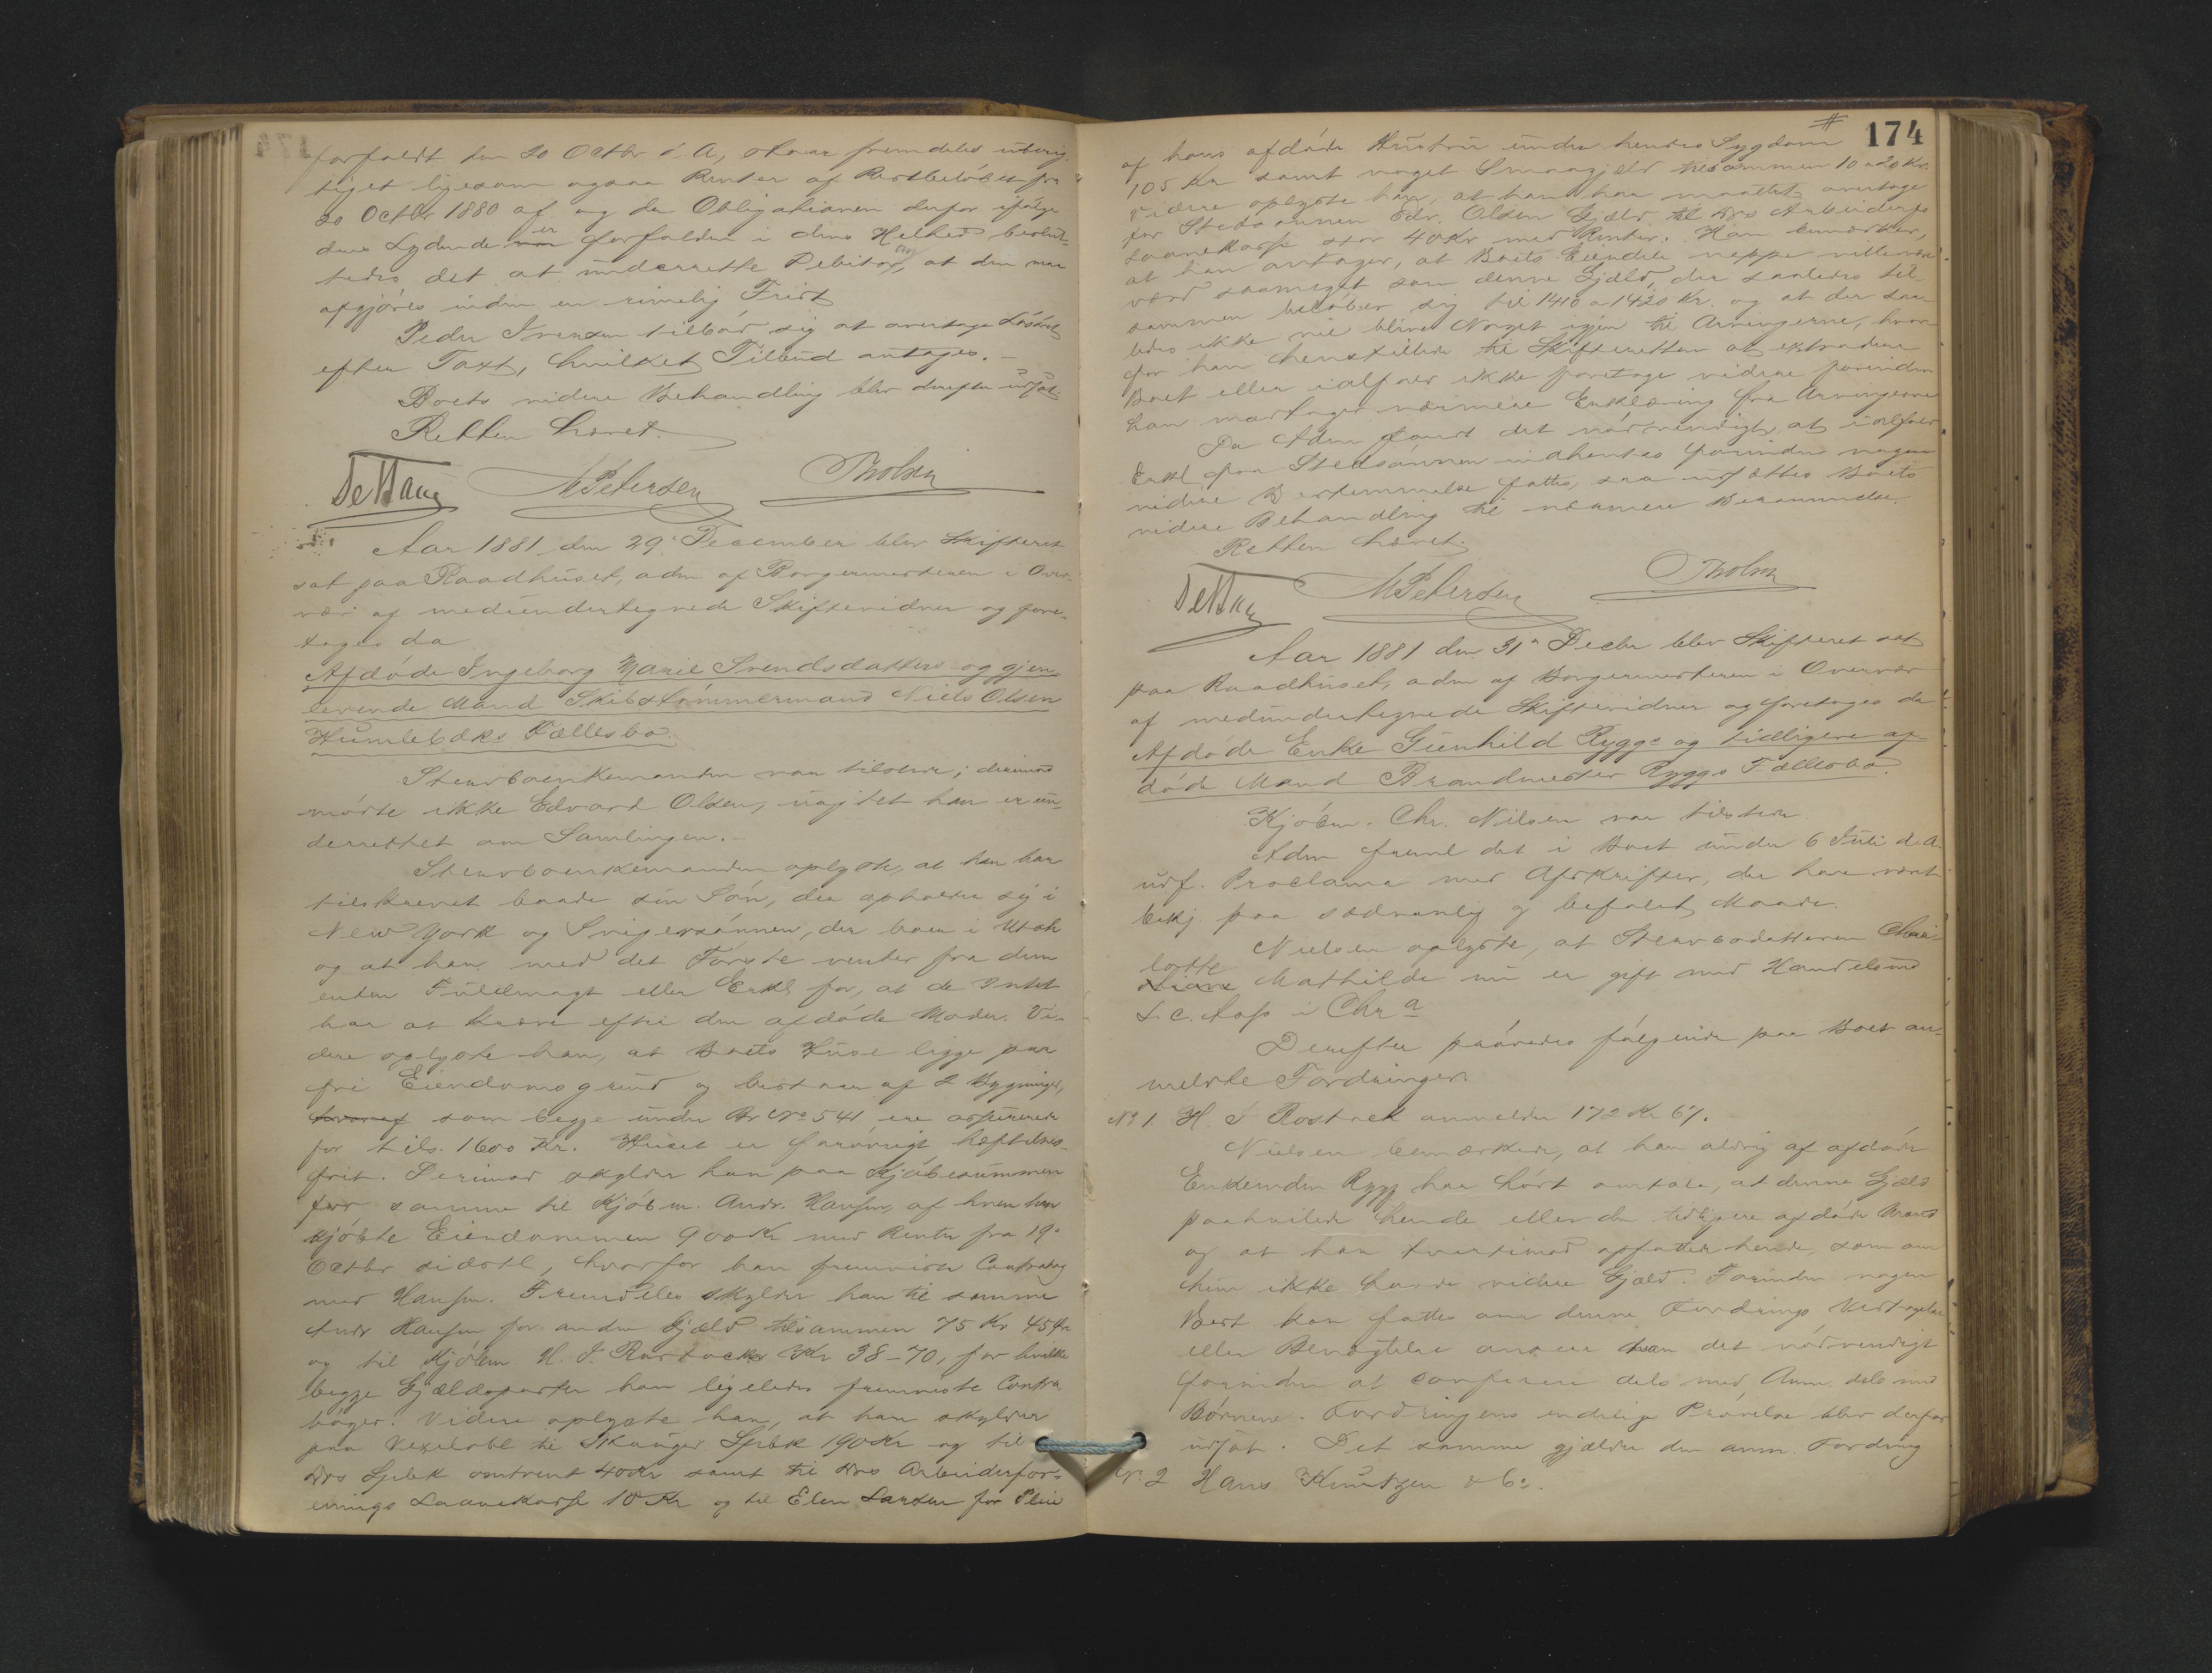 forfaldt den 20 Octbr d. A, staar fremdeles uberig-
tiget ligesom ogsaa Renter af Restbeløbet fra
20 Octbr 1880 af og da Obligationen derfor ifølge
dens Lydende er forfalden i dens Helhed beslut-
tedes det at underrette Debitor, at den maa
afgjøres inden en rimelig Frist
Peder Ivensen tilbød sig at overtage Løsøret
efter Taxt, hvilket Tilbud antages. -
Boets videre Behandling blev derefter udsat.
Retten hævet.
M Petersen Tholsen
Aar 1881 den 29de December blev Skifteret
sat paa Raadhuset, adm af Borgermesteren i Over-
vær af medundertegnede Skiftevidner og fore-
toges da
Afdøde Ingeborg Marie Svendsdatters og gjen-
levende Mand Skibstømmermand Niels Olsen
Humlebæks Fællesbo.
Stervboenkemanden var tilstede; derimod
mødte ikke Edvard Olsen, uagtet han er un-
derrettet om Samlingen. -
Stervboenkemanden oplyste, at han har
tilskrevet baade sin Søn, der opholder sig i
New York og Svigersønnen, der boer i Utah
og at han med det Første venter fra dem
enten Fuldmagt eller Erkl for, at de Intet
har at kræve efter den afdøde Moder. Vi-
dere oplyste han, at Boets Huse ligge paa
fri Eiendoms grund og bestaar af 2 Bygninger,
hvoraf som begge under Br No 541 ere assurerede
for tils. 1600 Kr. Huset er forøvrigt heftelses-
frit. Derimod skylder han paa Kjøbesummen
for samme til Kjøbm. Andr. Hansen, af hvem han
kjøbte Eiendommen 900 Kr med Renter fra 19de
Octbr sidstl, hvorfor han fremviste Contrabog
med Hansen. Fremdeles skylder han til samme
Andr Hansen for anden Gjæld tilsammen 75 Kr 45 Øre
og til Kjøbm H. J. Rostocks Kr 38-70, for hvilke
begge Gjældsposter han ligeledes fremviste Contra-
bøger. Videre oplyste han, at han skylder
paa Vexelobl til Skauger Spbk 190 Kr og til
Drs Spbk omtrent 40 Kr samt til Drs Arbeiderfor-
enings Laanekasse 10 Kr og til Elen Larsen for Pleie
174
af hans afdøde Hustru under hendes Sygdom #
105 Kr samt noget Smaagjæld tilsammen 10 a 20 Kr.
Videre oplyste han, at han har maattet overtage
for Stedsønnen Edv. Olsen Gjæld til Drs Arbeiderfs
Laanekasse stor 40 Kr med Renter. Han bemærker,
at han antager, at Boets Eiendele neppe ville være
værd saameget som denne Gjæld, der saaledes til-
sammen beløber sig til 1410 a 1420 Kr. og at der saa-
ledes ikke vil blive Noget igjen til Arvingerne, hvor-
for han henstillede til Skifteretten at extradere
Boet eller ialfald ikke foretage videre forinden
han modtager nærmere Erklæring fra Arvingerne
Da Adm fandt det nødvendigt, at ialfald
Erkl fra Stedsønnen indhentes forinden nogen
videre Bestemmelse fattes, saa udsættes Boets
videre Behandling til nærmere Berammelse.
Retten hævet.
M Petersen Tholsen
Aar 1881 den 31te Decbr blev Skifteret sat
paa Raadhuset, adm af Borgermesteren i Overvær
af medundertegnede Skiftevidner og foretoges da
Afdøde Enke Gunhild Ryggs og tidligere af-
døde Mand Brandmester Ryggs Fællesbo.
Kjøbm. Chr. Nilsen var tilstede
Adm freml det i Boet under 6 Juli d. A.
udf. Proclama med Afskrifter, der have været
bekj. paa sædvanlig og befalet Maade.
Nielsen oplyste, at Stervbodatteren Char-
lotte Mathilde nu er gift med Handelsmd
L. C. Aass i Chra
Derefter prøvedes følgende paa Boet an-
meldte Fordringer.
No 1. H. J Rostock anmelder 172 Kr 67.
Nielsen bemærkede, at han aldrig af afdøde
Enkemadm Rygg har hørt omtale, at denne Gjæld
paahvilede hende eller den tidligere afdøde Mand
og at han tvertimod opfattede hende, som om
hun ikke havde videre Gjæld. Forinden nogen
Best kan fattes om denne Fordrings Vedtagelse
eller Benægtelse ansees det nødvendigt
forinden at conferere dels med Anm. dels med
Børnene. Fordringens endelige Prøvelse blev derfor
udsat. Det samme gjælder den anm. Fordring
No. 2 Hans Knutzen & Co.